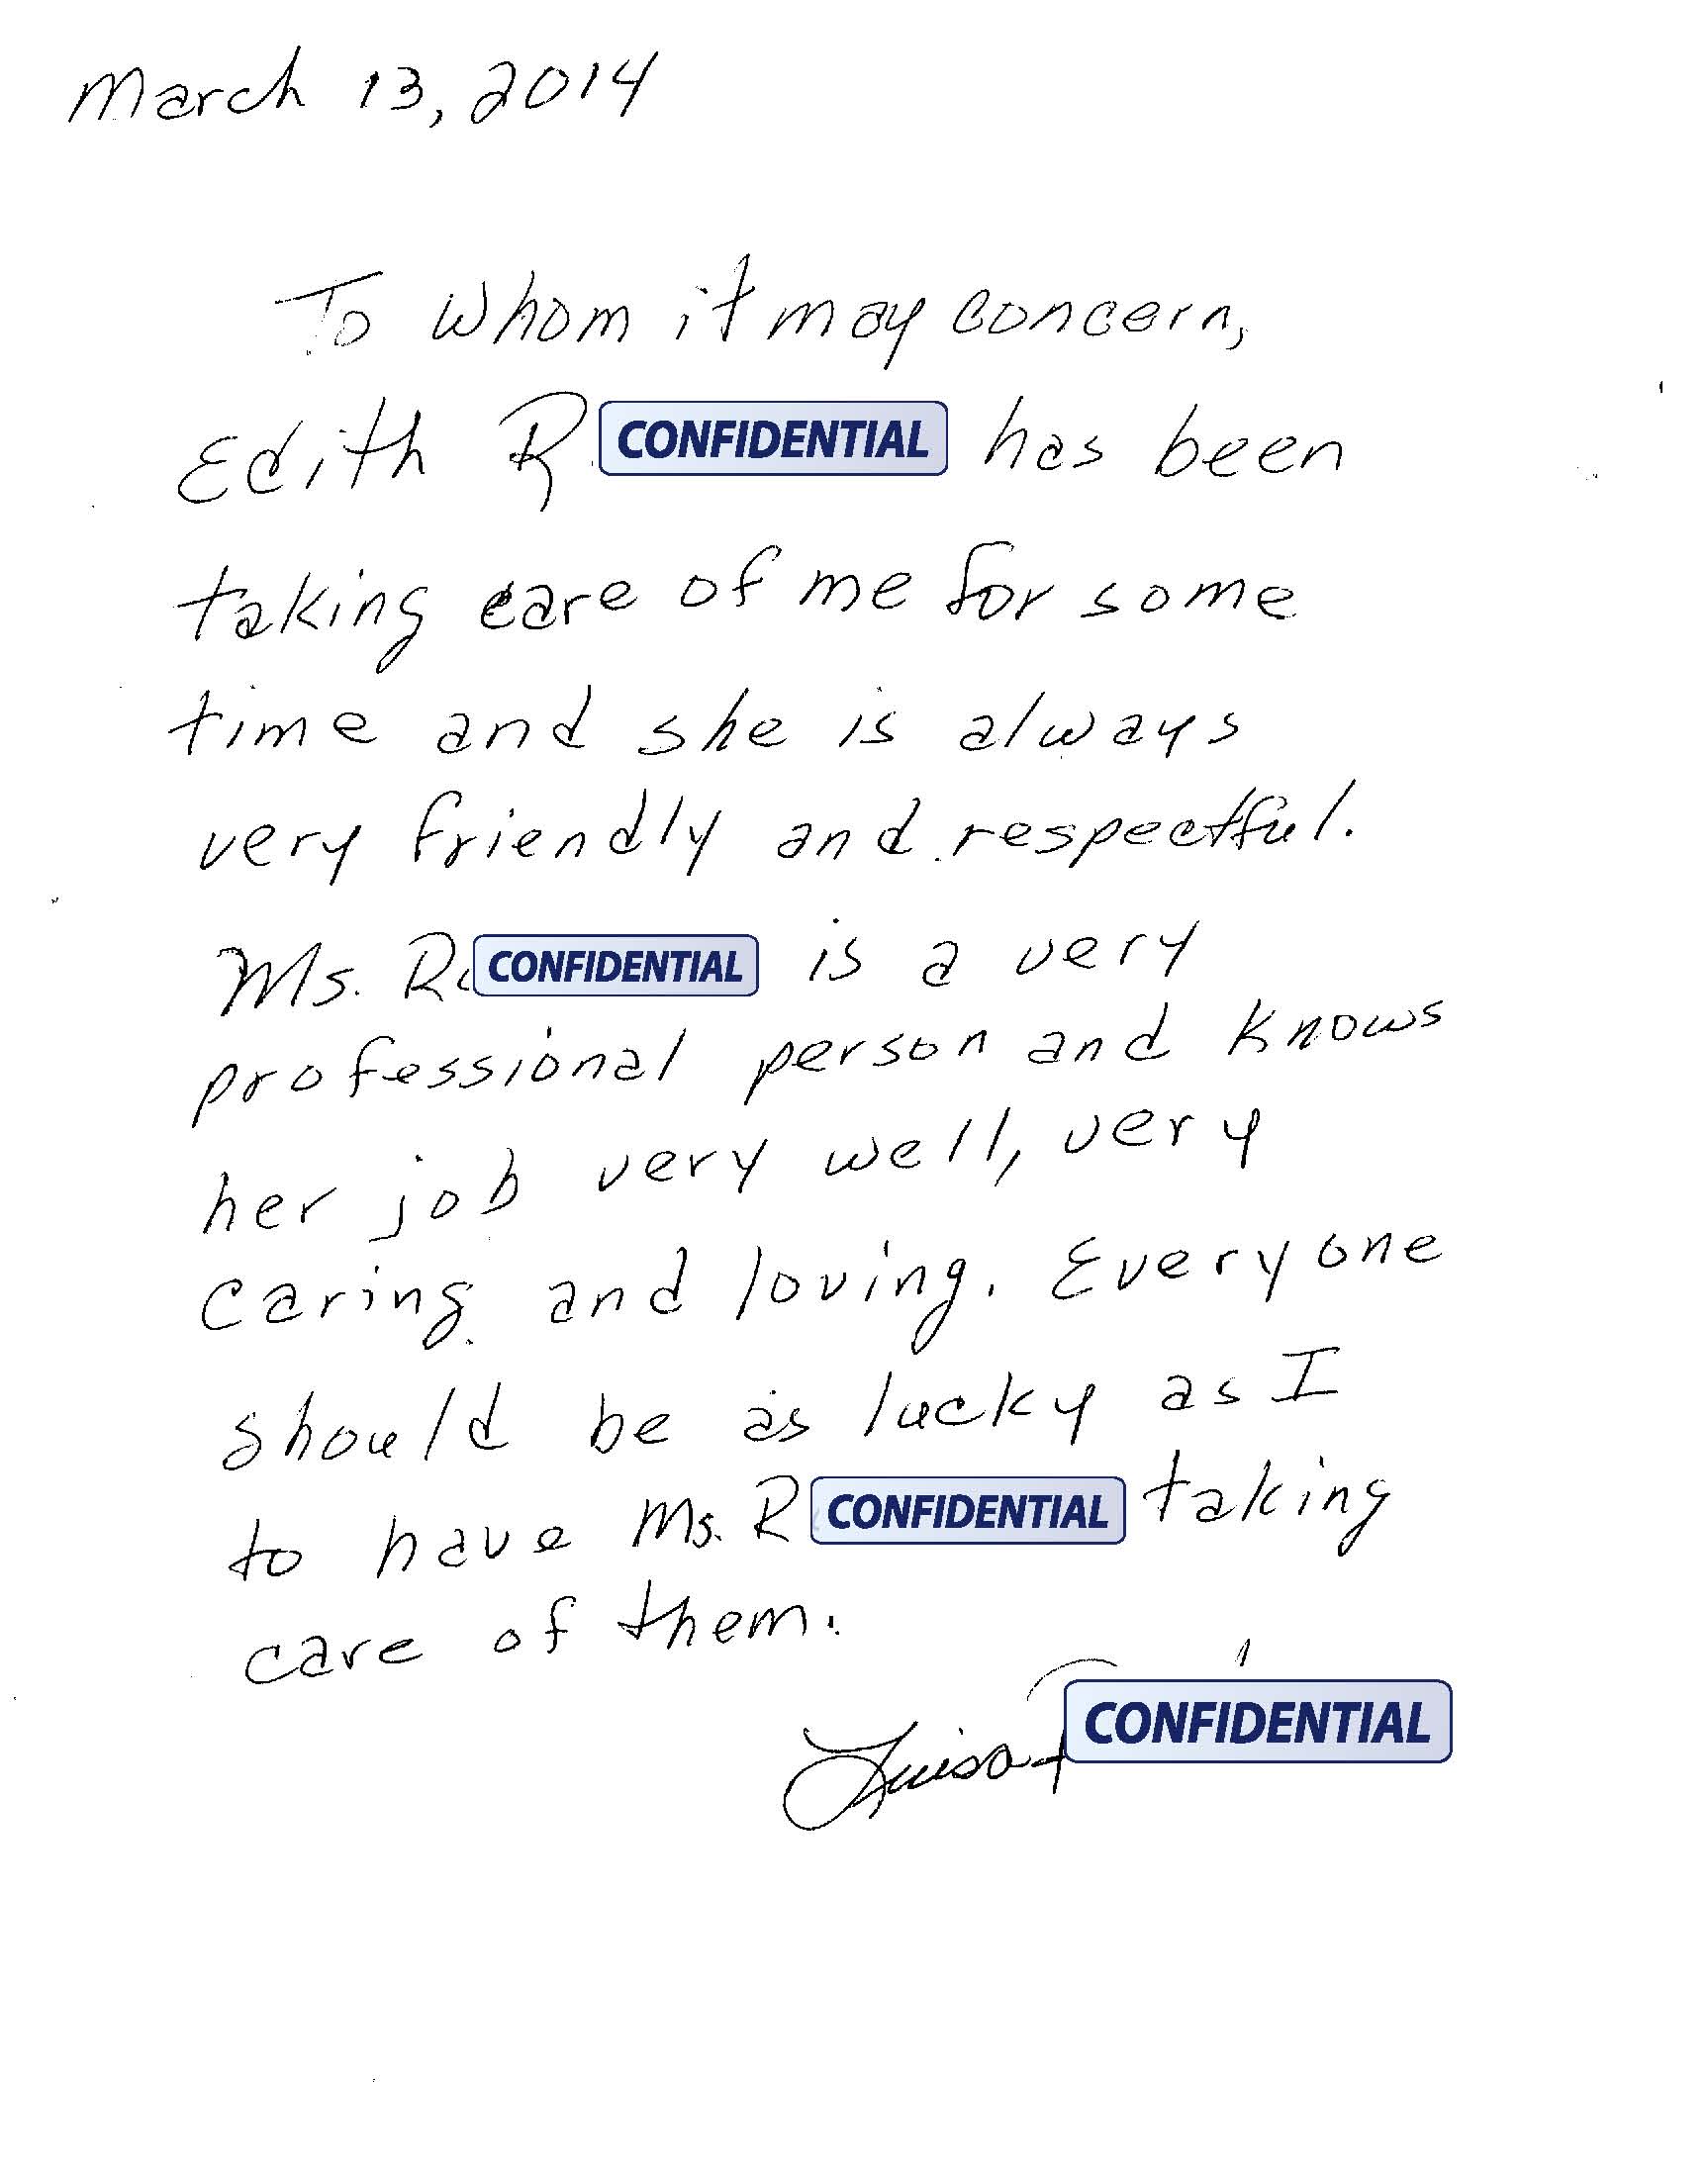 March 13, 2014
To whom it may concern,
Edith R CONFIDENTIAL has been
taking care of me for some
time and she is always
very friendly and respectful.
Ms. R CONFIDENTIAL is a very
professional person and knows
her job very well, very
caring and loving. Everyone
should be as lucky as I
to have Ms. R CONFIDENTIAL taking
care of them.
Luisa CONFIDENTIAL